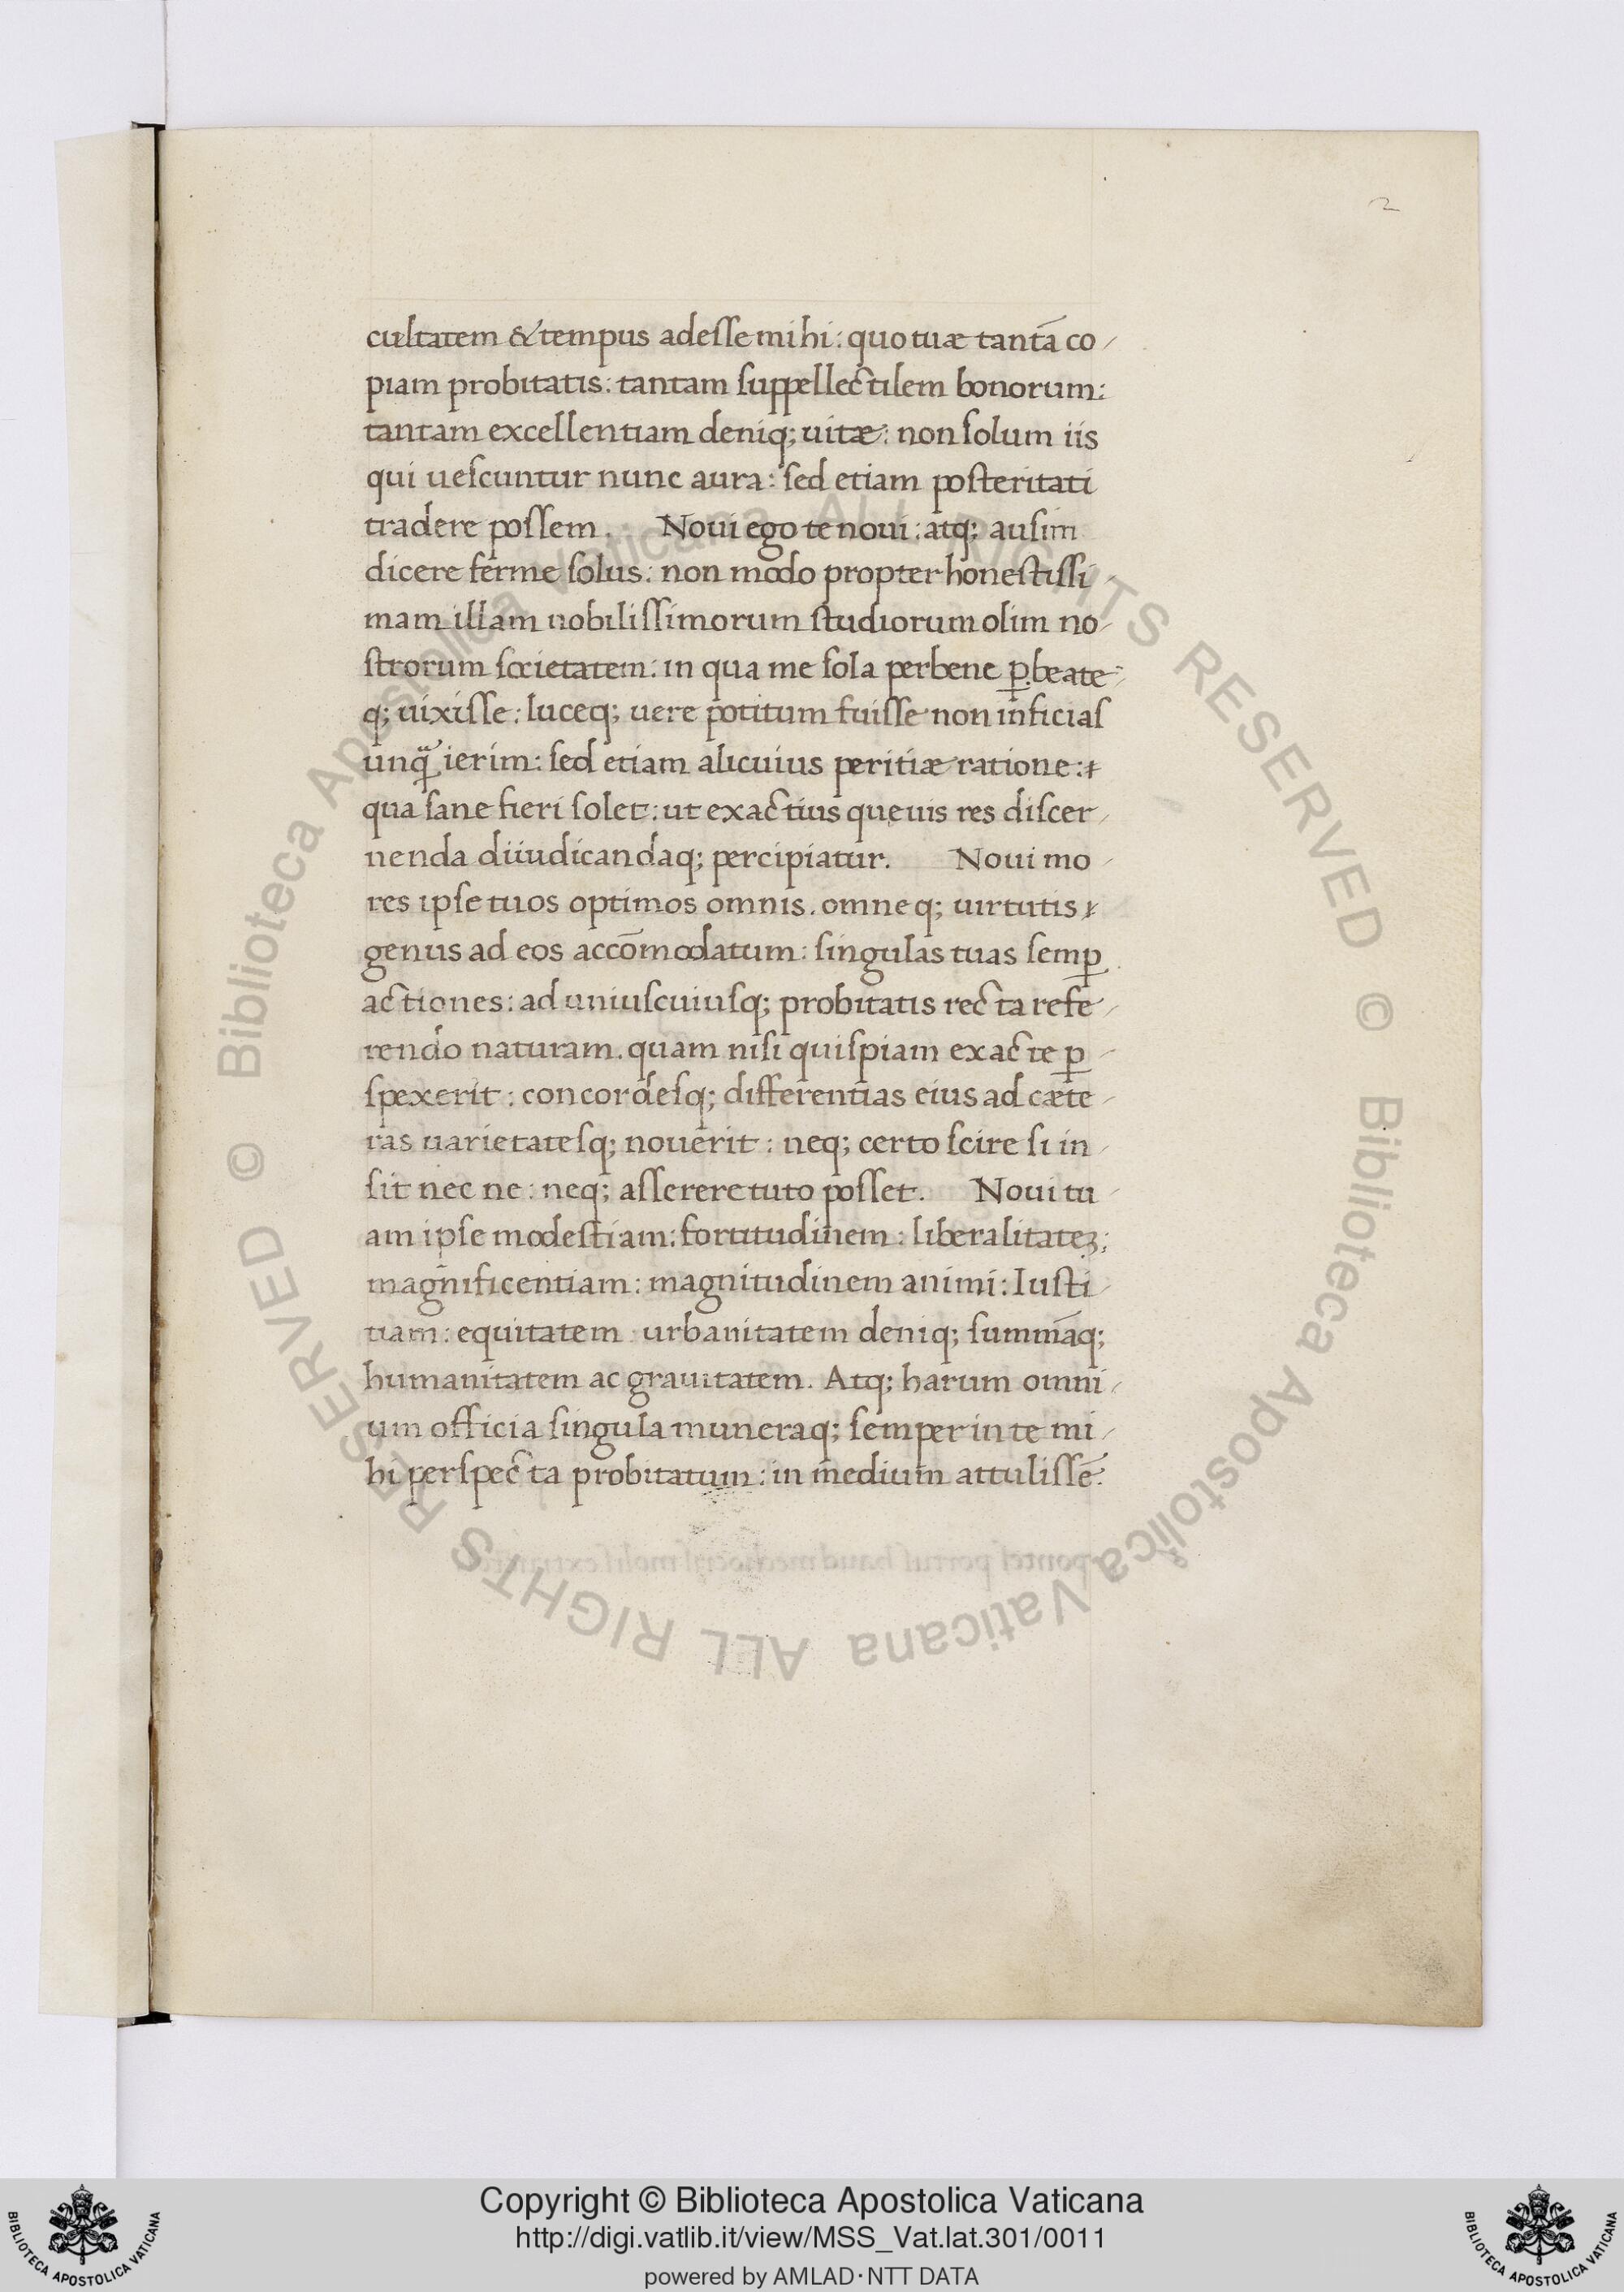 2
cultatem & tempus adesse mihi: quo tuæ tantā co-
piam probitatis: tantam suppellectilem bonorum:
tantam excellentiam deniq; uitæ: non solum iis
qui uescuntur nunc aura: sed etiam posteritati
tradere possem. Noui ego te noui: atq; ausim
dicere ferme solus: non modo propter honestissi-
mam illam nobilissimorum studiorum olim no-
strorum societatem: in qua me sola perbene ꝑbeate-
q; uixisse: luceq; uere potitum fuisse non inficias
unqᷓ ierim: sed etiam alicuius peritiæ ratione:
qua sane fieri solet: ut exactius queuis res discer-
nenda diiudicandaq; percipiatur. Noui mo-
res ipse tuos optimos omnis. omneq; uirtutis
genus ad eos accōmodatum: singulas tuas semꝑ
actiones: ad uniuscuiusq; probitatis recta refe-
rendo naturam. quam nisi quispiam exacte ꝑ-
spexerit: concordesq; differentias eius ad cæte-
ras uarietatesq; nouerit: neq; certo scire si in-
sit nec ne: neq; asserere tuto posset. Noui tu-
am ipse modestiam: fortitudinem: liberalitateꝫ:
magnificentiam: magnitudinem animi: Iusti-
tiam: equitatem: urbanitatem deniq; summāq;
humanitatem ac grauitatem. Atq; harum omni-
um officia singula muneraq; semper in te mi-
hi perspecta probitatum: in medium attulisse.
© Biblioteca Apostolica Vaticana ALL RIGHTS RESERVED
© Biblioteca Apostolica Vaticana ALL RIGHTS RESERVED
Copyright © Biblioteca Apostolica Vaticana
http://digi.vatlib.it/view/MSS_Vat.lat.301/0011
powered by AMLAD·NTT DATA
BIBLIOTECA APOSTOLICA VATICANA
BIBLIOTECA APOSTOLICA VATICANA